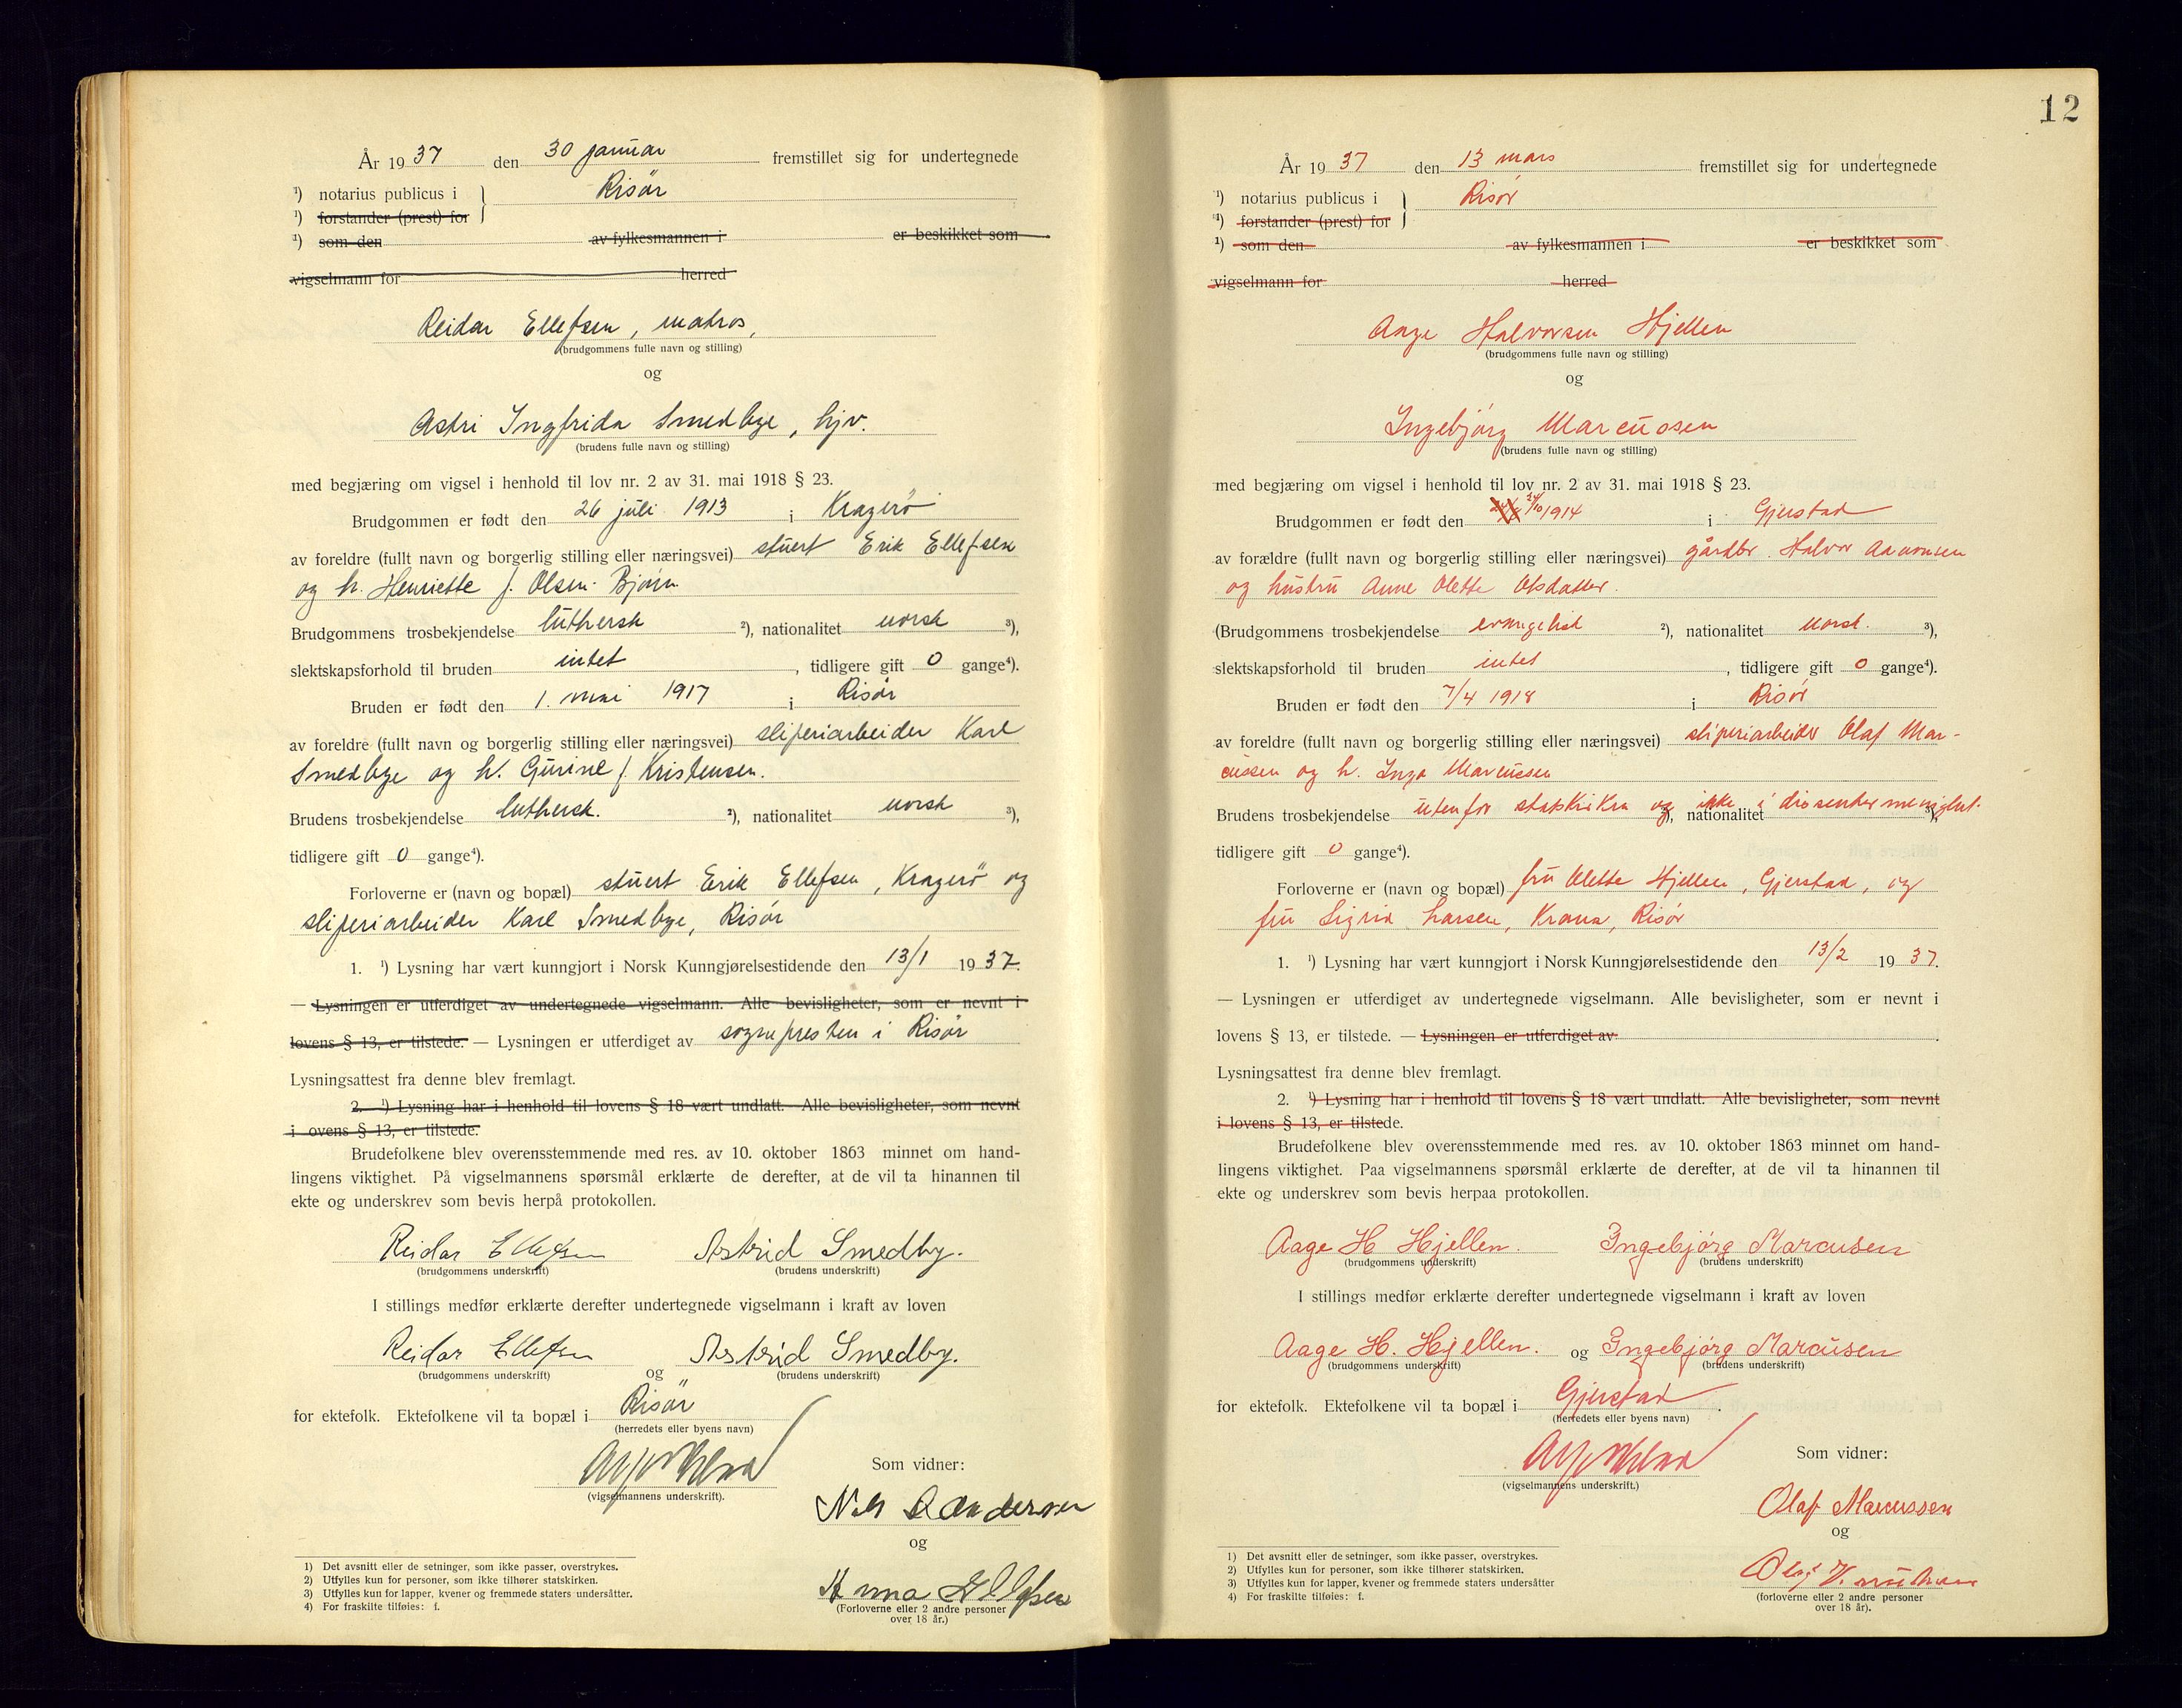 År 19 37 den 30 januar fremstillet sig for undertegnede
¹) notarius publicus i } Risör
¹) forstander (prest) for
¹) som den av fylkesmannen i er beskikket som
vigselmann for herred
Reidar Ellefsen, matros,
(brudgommens fulle navn og stilling)
og
Astri Ingfrida Smedbye, hjv.
(brudens fulle navn og stilling)
med begjæring om vigsel i henhold til lov nr. 2 av 31. mai 1918 § 23.
Brudgommen er født den 26 juli 1913 i Kragerö
av foreldre (fullt navn og borgerlig stilling eller næringsvei) stuert Erik Ellefsen
og h. Henriette f. Olsen-Bjørn
Brudgommens trosbekjendelse luthersk ²), nationalitet norsk ³),
slektskapsforhold til bruden intet, tidligere gift 0 gange⁴).
Bruden er født den 1. mai 1917 i Risør
av foreldre (fullt navn og borgerlig stilling eller næringsvei) sliperiarbeider Karl
Smedbye og h. Gurine f. Kristensen.
Brudens trosbekjendelse luthersk. ²), nationalitet norsk ³),
tidligere gift 0 gange⁴).
Forloverne er (navn og bopæl) stuert Erik Ellefsen, Kragerö og
sliperiarbeider Karl Smedbye, Risør
1. ¹) Lysning har vært kunngjort i Norsk Kunngjørelsestidende den 13/1 19 37.
— Lysningen er utferdiget av undertegnede vigselmann. Alle bevisligheter, som er nevnt i
lovens § 13, er tilstede. — Lysningen er utferdiget av sognepresten i Risör
Lysningsattest fra denne blev fremlagt.
2. ¹) Lysning har i henhold til lovens § 18 vært undlatt. Alle bevisligheter, som nevnt
i ovens § 13, er tilstede.
Brudefolkene blev overensstemmende med res. av 10. oktober 1863 minnet om hand-
lingens viktighet. På vigselmannens spørsmål erklærte de derefter, at de vil ta hinannen til
ekte og underskrev som bevis herpå protokollen.
Reidar Ellefsen Astrid Smedby.
(brudgommens underskrift) (brudens underskrift)
I stillings medfør erklærte derefter undertegnede vigselmann i kraft av loven
Reidar Ellefsen og Astrid Smedby.
(brudgommens underskrift) (brudens underskrift)
for ektefolk. Ektefolkene vil ta bopæl i Risör
(herredets eller byens navn)
(vigselmannens underskrift).
Som vidner:
Nils Andersen
og
Anna Ellefsen
(Forloverne eller 2 andre personer
over 18 år.)
1) Det avsnitt eller de setninger, som ikke passer, overstrykes.
2) Utfylles kun for personer, som ikke tilhører statskirken.
3) Utfylles kun for lapper, kvener og fremmede staters undersåtter.
4) For fraskilte tilføies: f.
12
År 19 37 den 13 mars fremstillet sig for undertegnede
¹) notarius publicus i } Risør
¹) forstander (prest) for
¹) som den av fylkesmannen i er beskikket som
vigselmann for herred
Aage Halvorsen Hjellen
(brudgommens fulle navn og stilling)
og
Ingebjørg Marcussen
(brudens fulle navn og stilling)
med begjæring om vigsel i henhold til lov nr. 2 av 31. mai 1918 § 23.
Brudgommen er født den 24/10 1914 i Gjerstad
av forældre (fullt navn og borgerlig stilling eller næringsvei) gårdbr. Halvor Aavonsen
og hustru Anne Olette Olsdatter.
(Brudgommens trosbekjendelse evangelisk ²), nationalitet norsk. ³),
slektskapsforhold til bruden intet, tidligere gift 0 gange⁴).
Bruden er født den 7/4 1918 i Risør
av foreldre (fullt navn og borgerlig stilling eller næringsvei) sliperiarbeider Olaf Mar-
cussen og h. Inga Marcussen
Brudens trosbekjendelse utenfor statskirken og ²), ikke nationalitet i dissentermenighet. ³),
tidligere gift 0 gange⁴).
Forloverne er (navn og bopæl) fru Olette Hjellen, Gjerstad, og
fru Sigrid Larsen, Krana, Risør
1. ¹) Lysning har vært kunngjort i Norsk Kunngjørelsestidende den 13/2 19 37.
— Lysningen er utferdiget av undertegnede vigselmann. Alle bevisligheter, som er nevnt i
lovens § 13, er tilstede. — Lysningen er utferdiget av .
Lysningsattest fra denne blev fremlagt.
2. ¹) Lysning har i henhold til lovens § 18 vært undlatt. Alle bevisligheter, som nevnt
i lovens § 13, er tilstede.
Brudefolkene blev overensstemmende med res. av 10. oktober 1863 minnet om hand-
lingens viktighet. Paa vigselmannens spørsmål erklærte de derefter, at de vil ta hinannen til
ekte og underskrev som bevis herpaa protokollen.
Aage H Hjellen. Ingebjørg Marcusen
(brudgommens underskrift) (brudens underskrift)
I stillings medfør erklærte derefter undertegnede vigselmann i kraft av loven
Aage H. Hjellen. og Ingebjørg Marcusen
(brudgommens underskrift) (brudens underskrift)
for ektefolk. Ektefolkene vil ta bopæl i Gjerstad .
(herredets eller byens navn)
(vigselmannens underskrift.)
Som vidner:
Olaf Marcussen
og
Olaf
(forloverne eller 2 andre personer
over 18 år).
1) Det avsnitt eller de setninger, som ikke passer, overstrykes.
2) Utfylles kun for personer, som ikke tilhører statskirken.
3) Utfylles kun for lapper, kvener og fremmede staters undersåtter
4) For fraskilte tilføies: f.